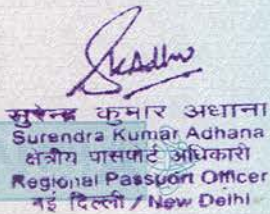 सुरेन्द्र कुमार अधाना
Surendra Kumar Adhana
क्षेत्रीय पासपोर्ट अधिकारी
Regional Passport Officer
नई दिल्ली / New Delhi